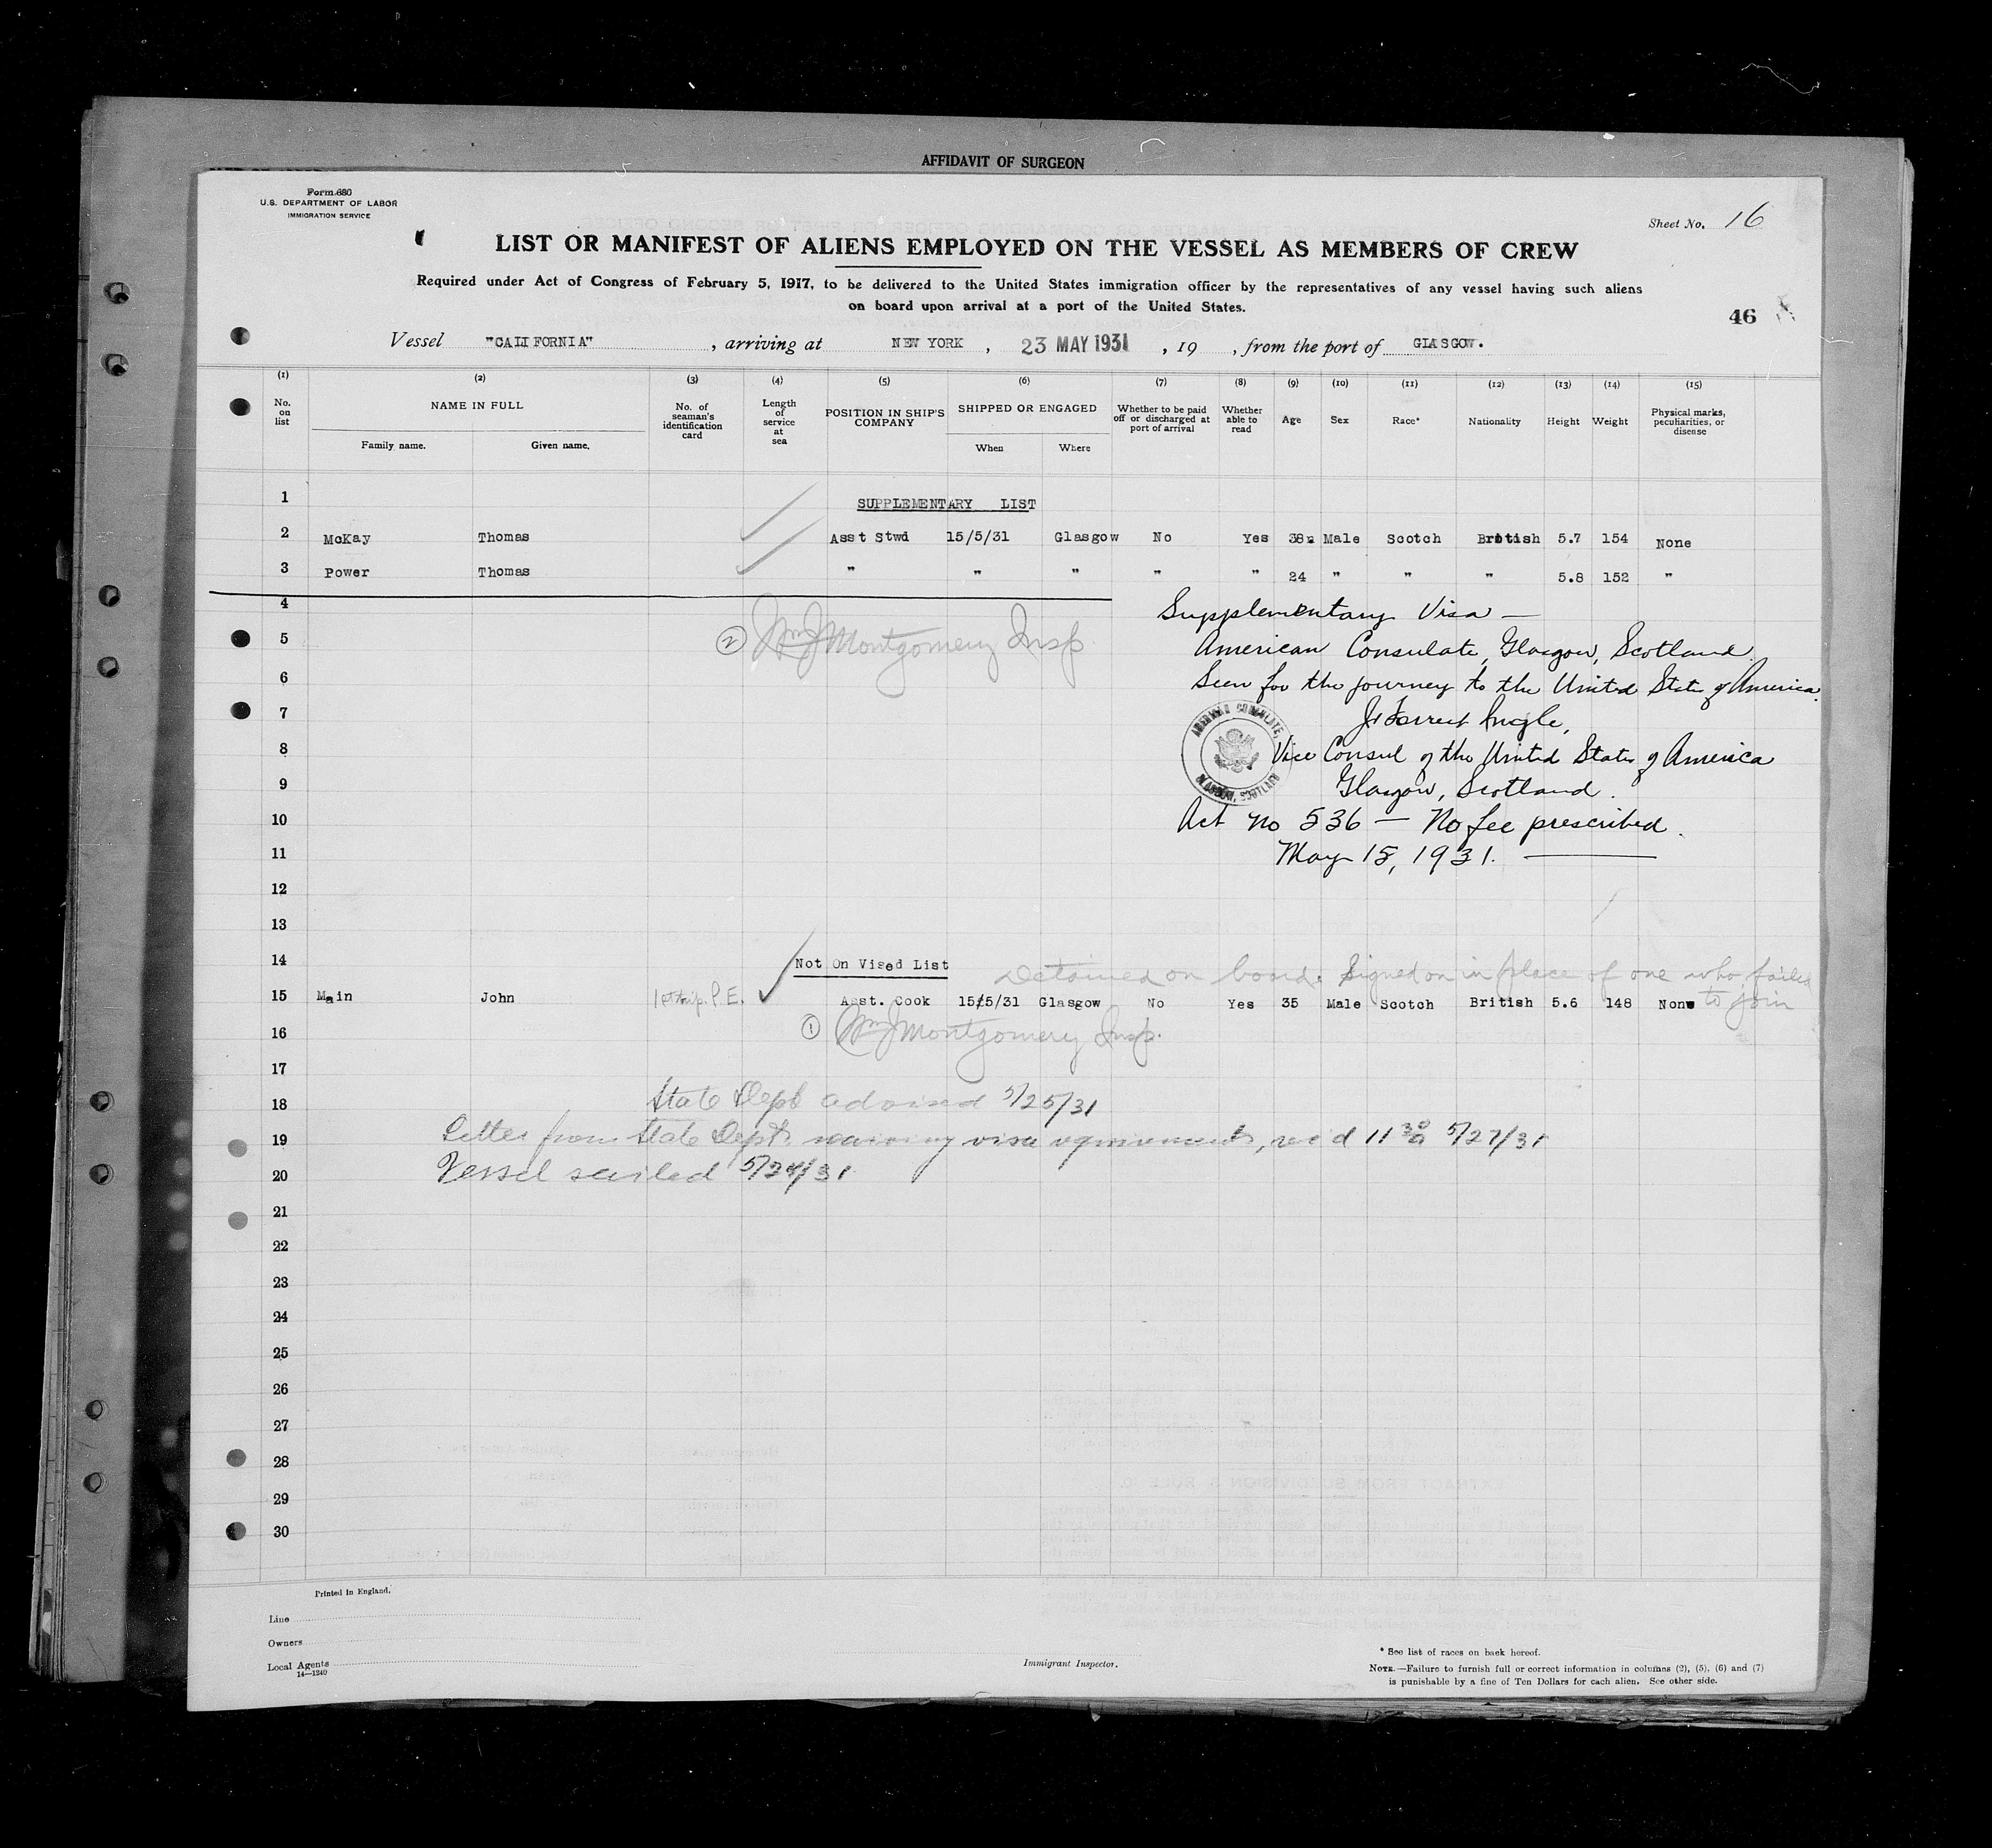 AFFIDAVIT OF SURGEON
Form 680
U.S. DEPARTMENT OF LABOR
IMMIGRATION SERVICE
Sheet No. 16
LIST OR MANIFEST OF ALIENS EMPLOYED ON THE VESSEL AS MEMBERS OF CREW
Required under Act of Congress of February 5, 1917, to be delivered to the United States immigration officer by the representatives of any vessel having such aliens
on board upon arrival at a port of the United States.
46
Vessel "CALIFORNIA", arriving at NEW YORK, 23 MAY 1931, 19 , from the port of GLASGOW.
(1) (2) (3) (4) (5) (6) (7) (8) (9) (10) (11) (12) (13) (14) (15)
No. on list NAME IN FULL Family name. Given name. No. of seaman's identification card Length of service at sea POSITION IN SHIP'S COMPANY SHIPPED OR ENGAGED When Where Whether to be paid off or discharged at port of arrival Whether able to read Age Sex Race* Nationality Height Weight Physical marks, peculiarities, or disease
1 SUPPLEMENTARY LIST
2 McKay Thomas Asst Stwd 15/5/31 Glasgow No Yes 38 Male Scotch British 5.7 154 None
3 Power Thomas " " " " " 24 " " " 5.8 152 "
4 Supplementary Visa —
5 (2) Wm J Montgomery Insp. American Consulate, Glasgow, Scotland
6 Seen for the journey to the United States of America
7 Ingle,
AMERICAN CONSULATE, GLASGOW, SCOTLAND
8 Vice Consul of the United States of America
9 Glasgow, Scotland.
10 Act no 536 — No fee prescribed.
11 May 15, 1931. —
12
13
14 Not On Vised List Detained on board. Signed on in place of one who failed to join
15 Main John 1st trip. P.E. Asst. Cook 15/5/31 Glasgow No Yes 35 Male Scotch British 5.6 148 None
16 (1) Wm J Montgomery Insp.
17
18 State Dept advised 5/25/31
19 Letter from State Dept. waiving visa requirements, rec'd 11 30 a 5/27/31
20 Vessel sailed 5/29/31
21
22
23
24
25
26
27
28
29
30
Printed in England.
Line
Owners
Local Agents
14—1240
Immigrant Inspector.
* See list of races on back hereof.
NOTE.—Failure to furnish full or correct information in columns (2), (5), (6) and (7)
is punishable by a fine of Ten Dollars for each alien. See other side.